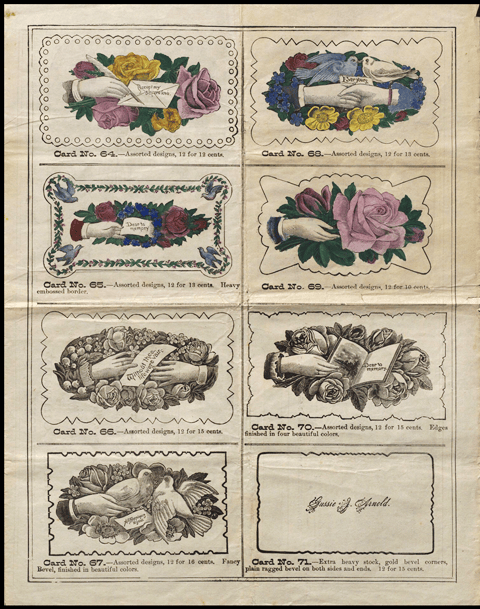 Card No. 64.—Assorted designs, 12 for 12 cents.
Ever yours
Card No. 68.—Assorted designs, 12 for 13 cents.
Dear to
memory
Card No. 65.—Assorted designs, 12 for 13 cents. Heavy
embossed border.
Card No. 69.—Assorted designs, 12 for 16 cents.
Card No. 66.—Assorted designs, 12 for 15 cents.
Dear to
memory
Card No. 70.—Assorted designs, 12 for 15 cents. Edges
finished in four beautiful colors.
Card No. 67.—Assorted designs, 12 for 16 cents. Fancy
Bevel, finished in beautiful colors.
Gussie J. Arnold.
Card No. 71.—Extra heavy stock, gold bevel corners,
plain ragged bevel on both sides and ends. 12 for 15 cents.